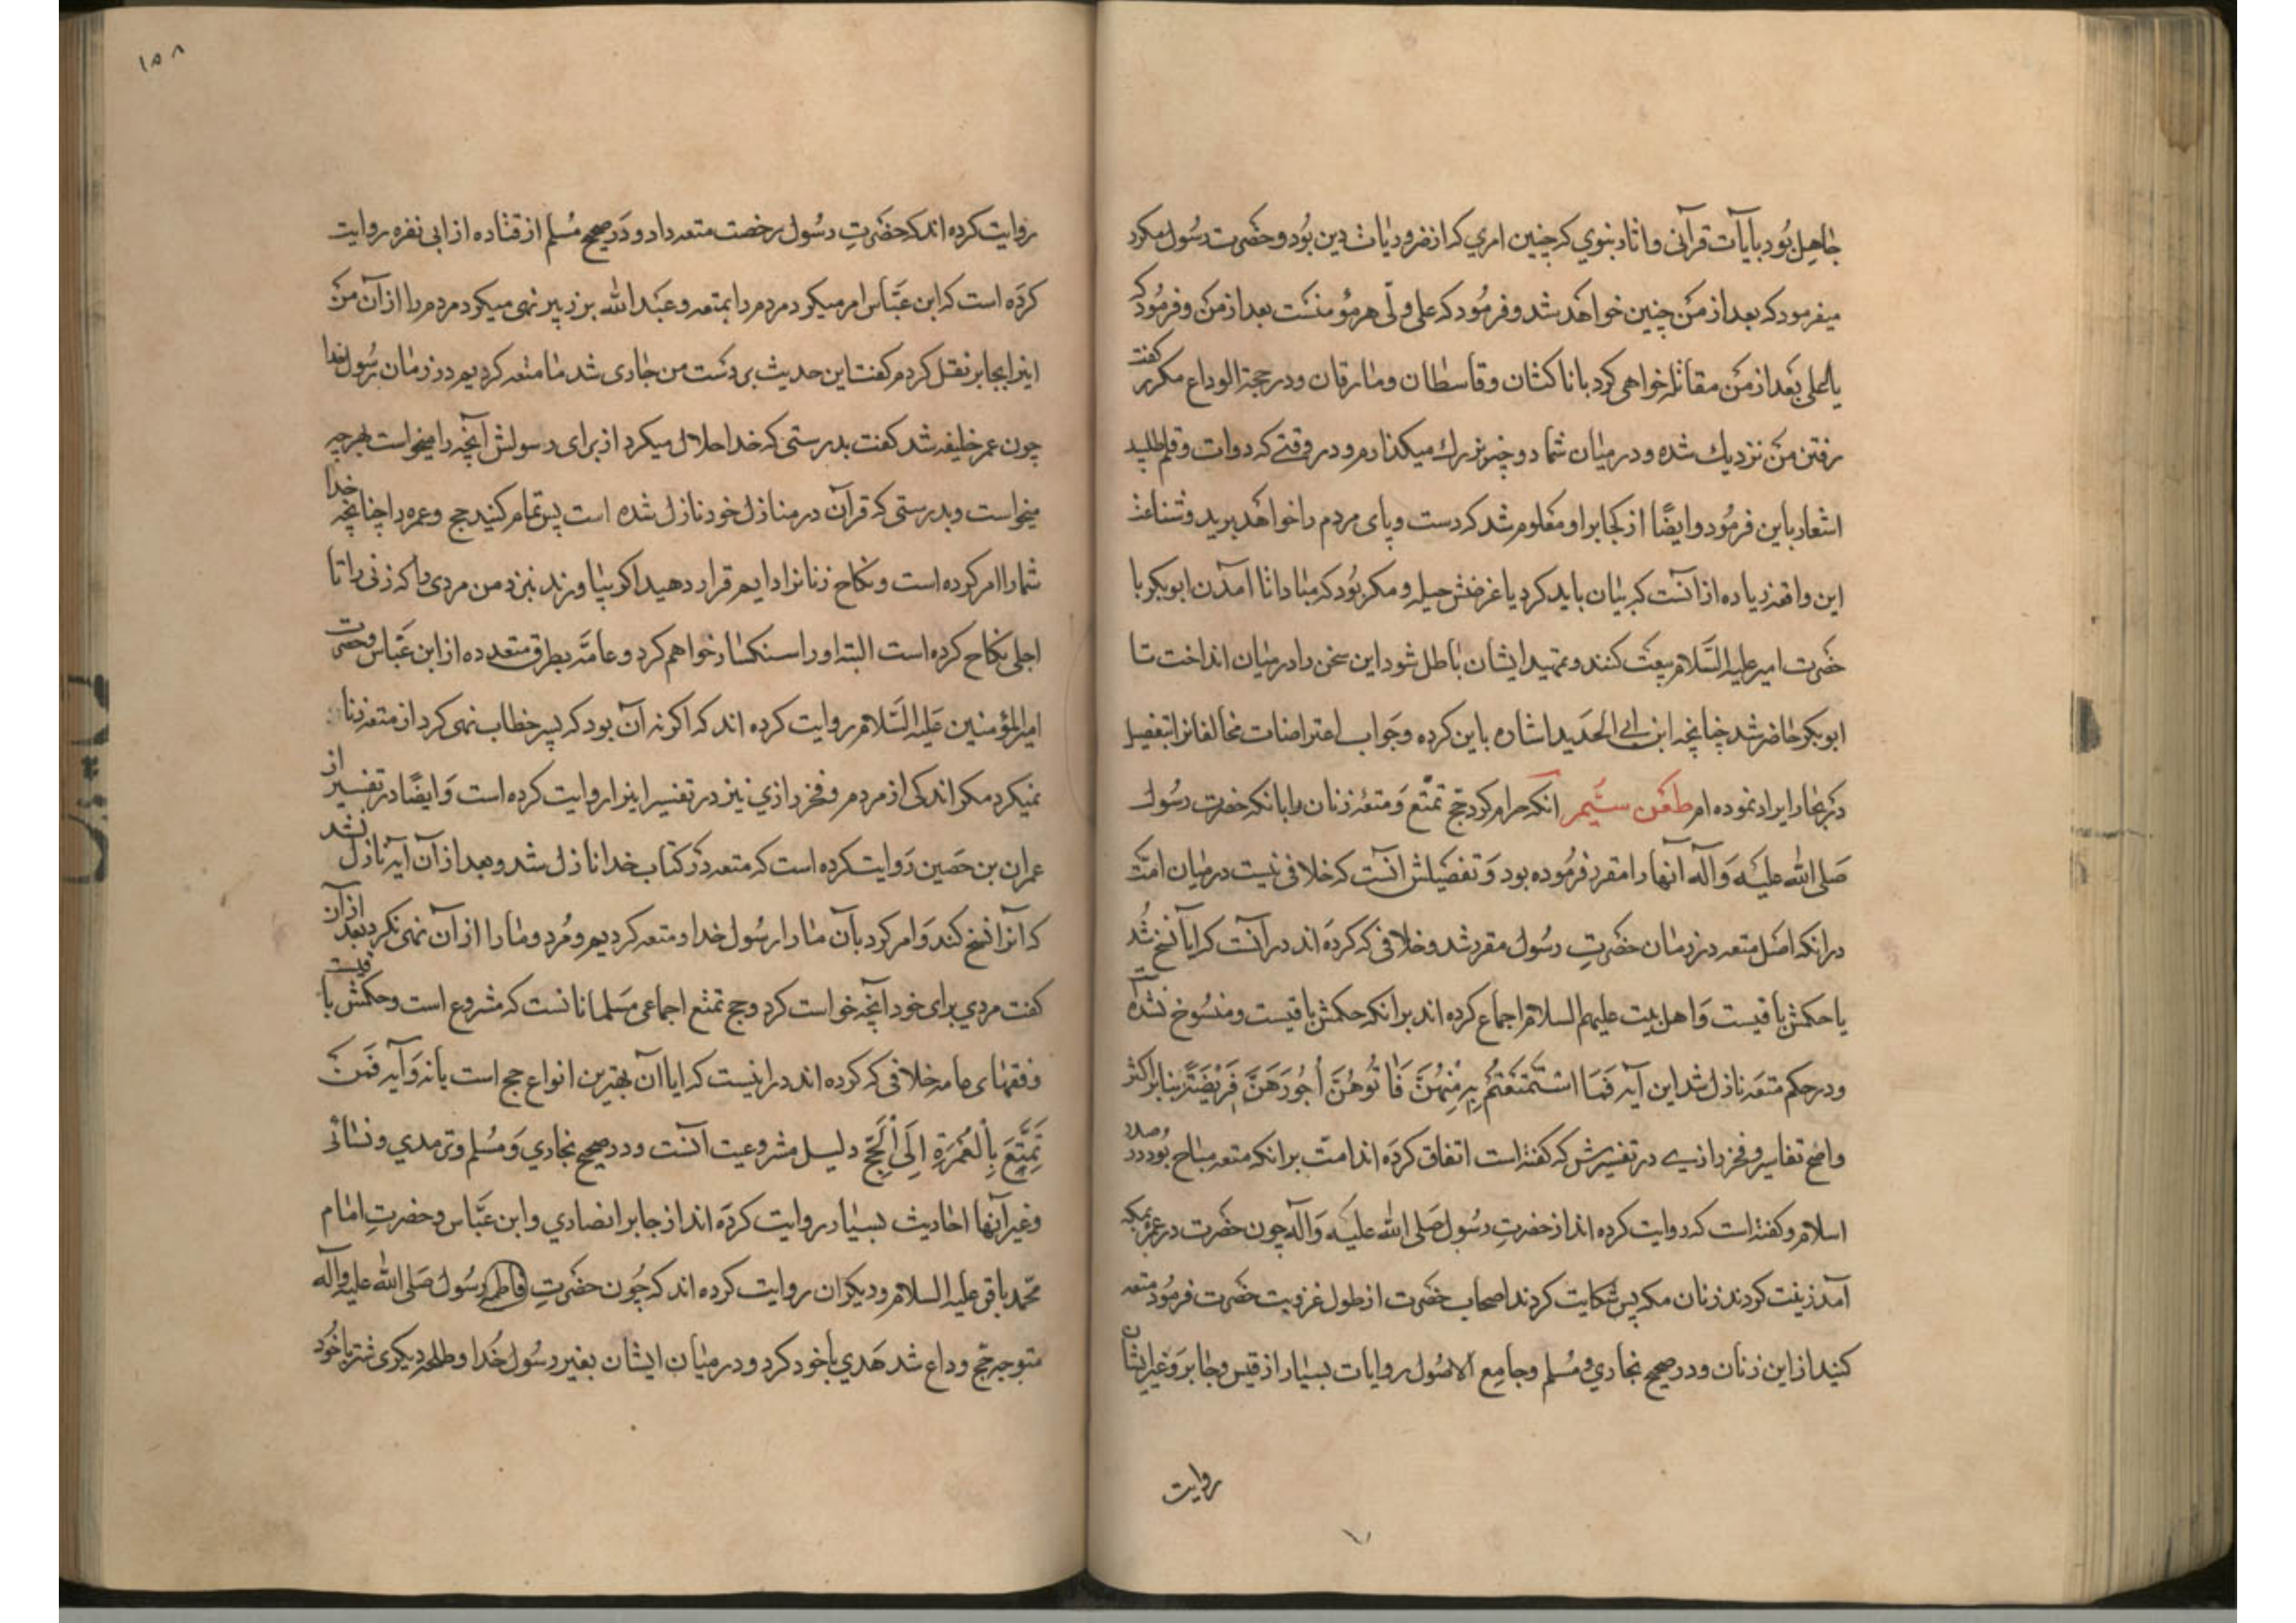 جاهل بود بآیات قرآنی و اثار نبوی که چنین امری که از ضروریات دین بود و حضرت رسول مکرر
میفرمود که بعد از من چنین خواهد شد و فرمود که علی ولی هر مؤمنست بعد از من و فرمود که
یا علی بعد از من مقاتله خواهی کرد با ناکثان و قاسطان و مارقان و در حجة الوداع مکرر گفت
رفتن من نزدیک شده و در میان شما دو چیز بزرک میکذارم و در وقتی که دوات و قلم طلبید
اشعار باین فرمود و ایضًا از کجا بر او معلوم شد که دست و پای مردم را خواهد برید و شناعت
این واقعه زیاده از آنست که بیان باید کرد یا غرضش حیله و مکر بود که مبادا تا آمدن ابوبکر با
حضرت امیر علیه السلام بیعت کنند و تمهید ایشان باطل شود این سخن را در میان انداخت تا
ابوبکر حاضر شد چنانچه ابن ابی الحدید اشاره باین کرده و جواب اعتراضات مخالفانرا بتفصیل
در بحار ایراد نموده ام طعن ششم انکه حرام کرد حج تمتع و متعه زنان را با انکه حضرت رسول
صلی الله علیه و آله آنها را مقرر فرموده بود و تفصیلش آنست که خلافی نیست در میان امت
در انکه اصل متعه در زمان حضرت رسول مقرر شد و خلافی که کرده اند در آنست که ایا نسخ شد
یا حکمش باقیست و اهل بیت علیهم السلام اجماع کرده اند بر انکه حکمش باقیست و منسوخ نشده است
و در حکم متعه نازل شد این آیه فَمَا اسْتَمْتَعْتُمْ بِهِ مِنْهُنَّ فَاتُوهُنَّ أُجُورَهُنَّ فَرِیضَةً بنابر اکثر
واضح تفاسیر و فخر رازی در تفسیرش که گفته است اتفاق کرده اند امت بر انکه متعه مباح بود در صدر
اسلام و کفته است که روایت کرده اند از حضرت رسول صلی الله علیه و آله چون حضرت در عمره بمکه
آمد زینت کردند زنان مکه پس شکایت کردند اصحاب حضرت از طول عزوبت حضرت فرمود متعه
کنید از این زنان و در صحیح بخاری و مسلم و جامع الاصول روایات بسیار از قیس و جابر و غیر ایشان
روایت
۱۵۸
روایت کرده اند که حضرت رسول رخصت متعه داد و در صحیح مسلم از قتاده از ابی نضره روایت
کرده است که ابن عباس امر میکرد مردم را بمتعه و عبد الله بن زبیر نهی میکرد مردم را از آن من
اینرا بجابر نقل کردم کفت این حدیث بر دست من جاری شد ما متعه کردیم در زمان رسول خدا
چون عمر خلیفه شد کفت بدرستی که خدا حلال میکرد از برای رسولش آنچه را میخواست بهرچه
میخواست و بدرستی که قرآن در منازل خود نازل شده است پس تمام کنید حج و عمره را چنانچه خدا
شما را امر کرده است و نکاح زنانرا دایم قرار دهید اکر بیاورند بنزد من مردی را که زنی را تا
اجلی نکاح کرده است البته او را سنکسار خواهم کرد و عامه بطرق متعدده از ابن عباس و حضرت
امیر المؤمنین علیه السلام روایت کرده اند که اکر نه آن بود که پسر خطاب نهی کرد از متعه زنا
نمیکرد مکر اندکی از مردم و فخر رازی نیز در تفسیر اینرا روایت کرده است و ایضًا در تفسیر از
عمران بن حصین روایت کرده است که متعه در کتاب خدا نازل شد و بعد از آن آیه نازل نشد
که آنرا نسخ کند و امر کرد بآن ما را رسول خدا و متعه کردیم و مرد و ما را از آن نهی نکرد بعد از آن
کفت مردی برای خود آنچه خواست کرد و حج تمتع اجماعی مسلمانانست که مشروع است و حکمش باقیست
و فقهای عامه خلافی که کرده اند در اینست که ایا آن بهترین انواع حج است یا نه و آیه فَمَنْ
تَمَتَّعَ بِالْعُمْرَةِ اِلَی الْحَجِّ دلیل مشروعیت آنست و در صحیح بخاری و مسلم و ترمدی و نسائی
و غیر آنها احادیث بسیار روایت کرده اند از جابر انصاری و ابن عباس و حضرت امام
محمد باقر علیه السلام و دیکران روایت کرده اند که چون حضرت فاطمه رسول صلی الله علیه و آله
متوجه حج وداع شد هدی با خود کرد و در میان ایشان بغیر رسول خدا و طلحه دیکری شتر با خود